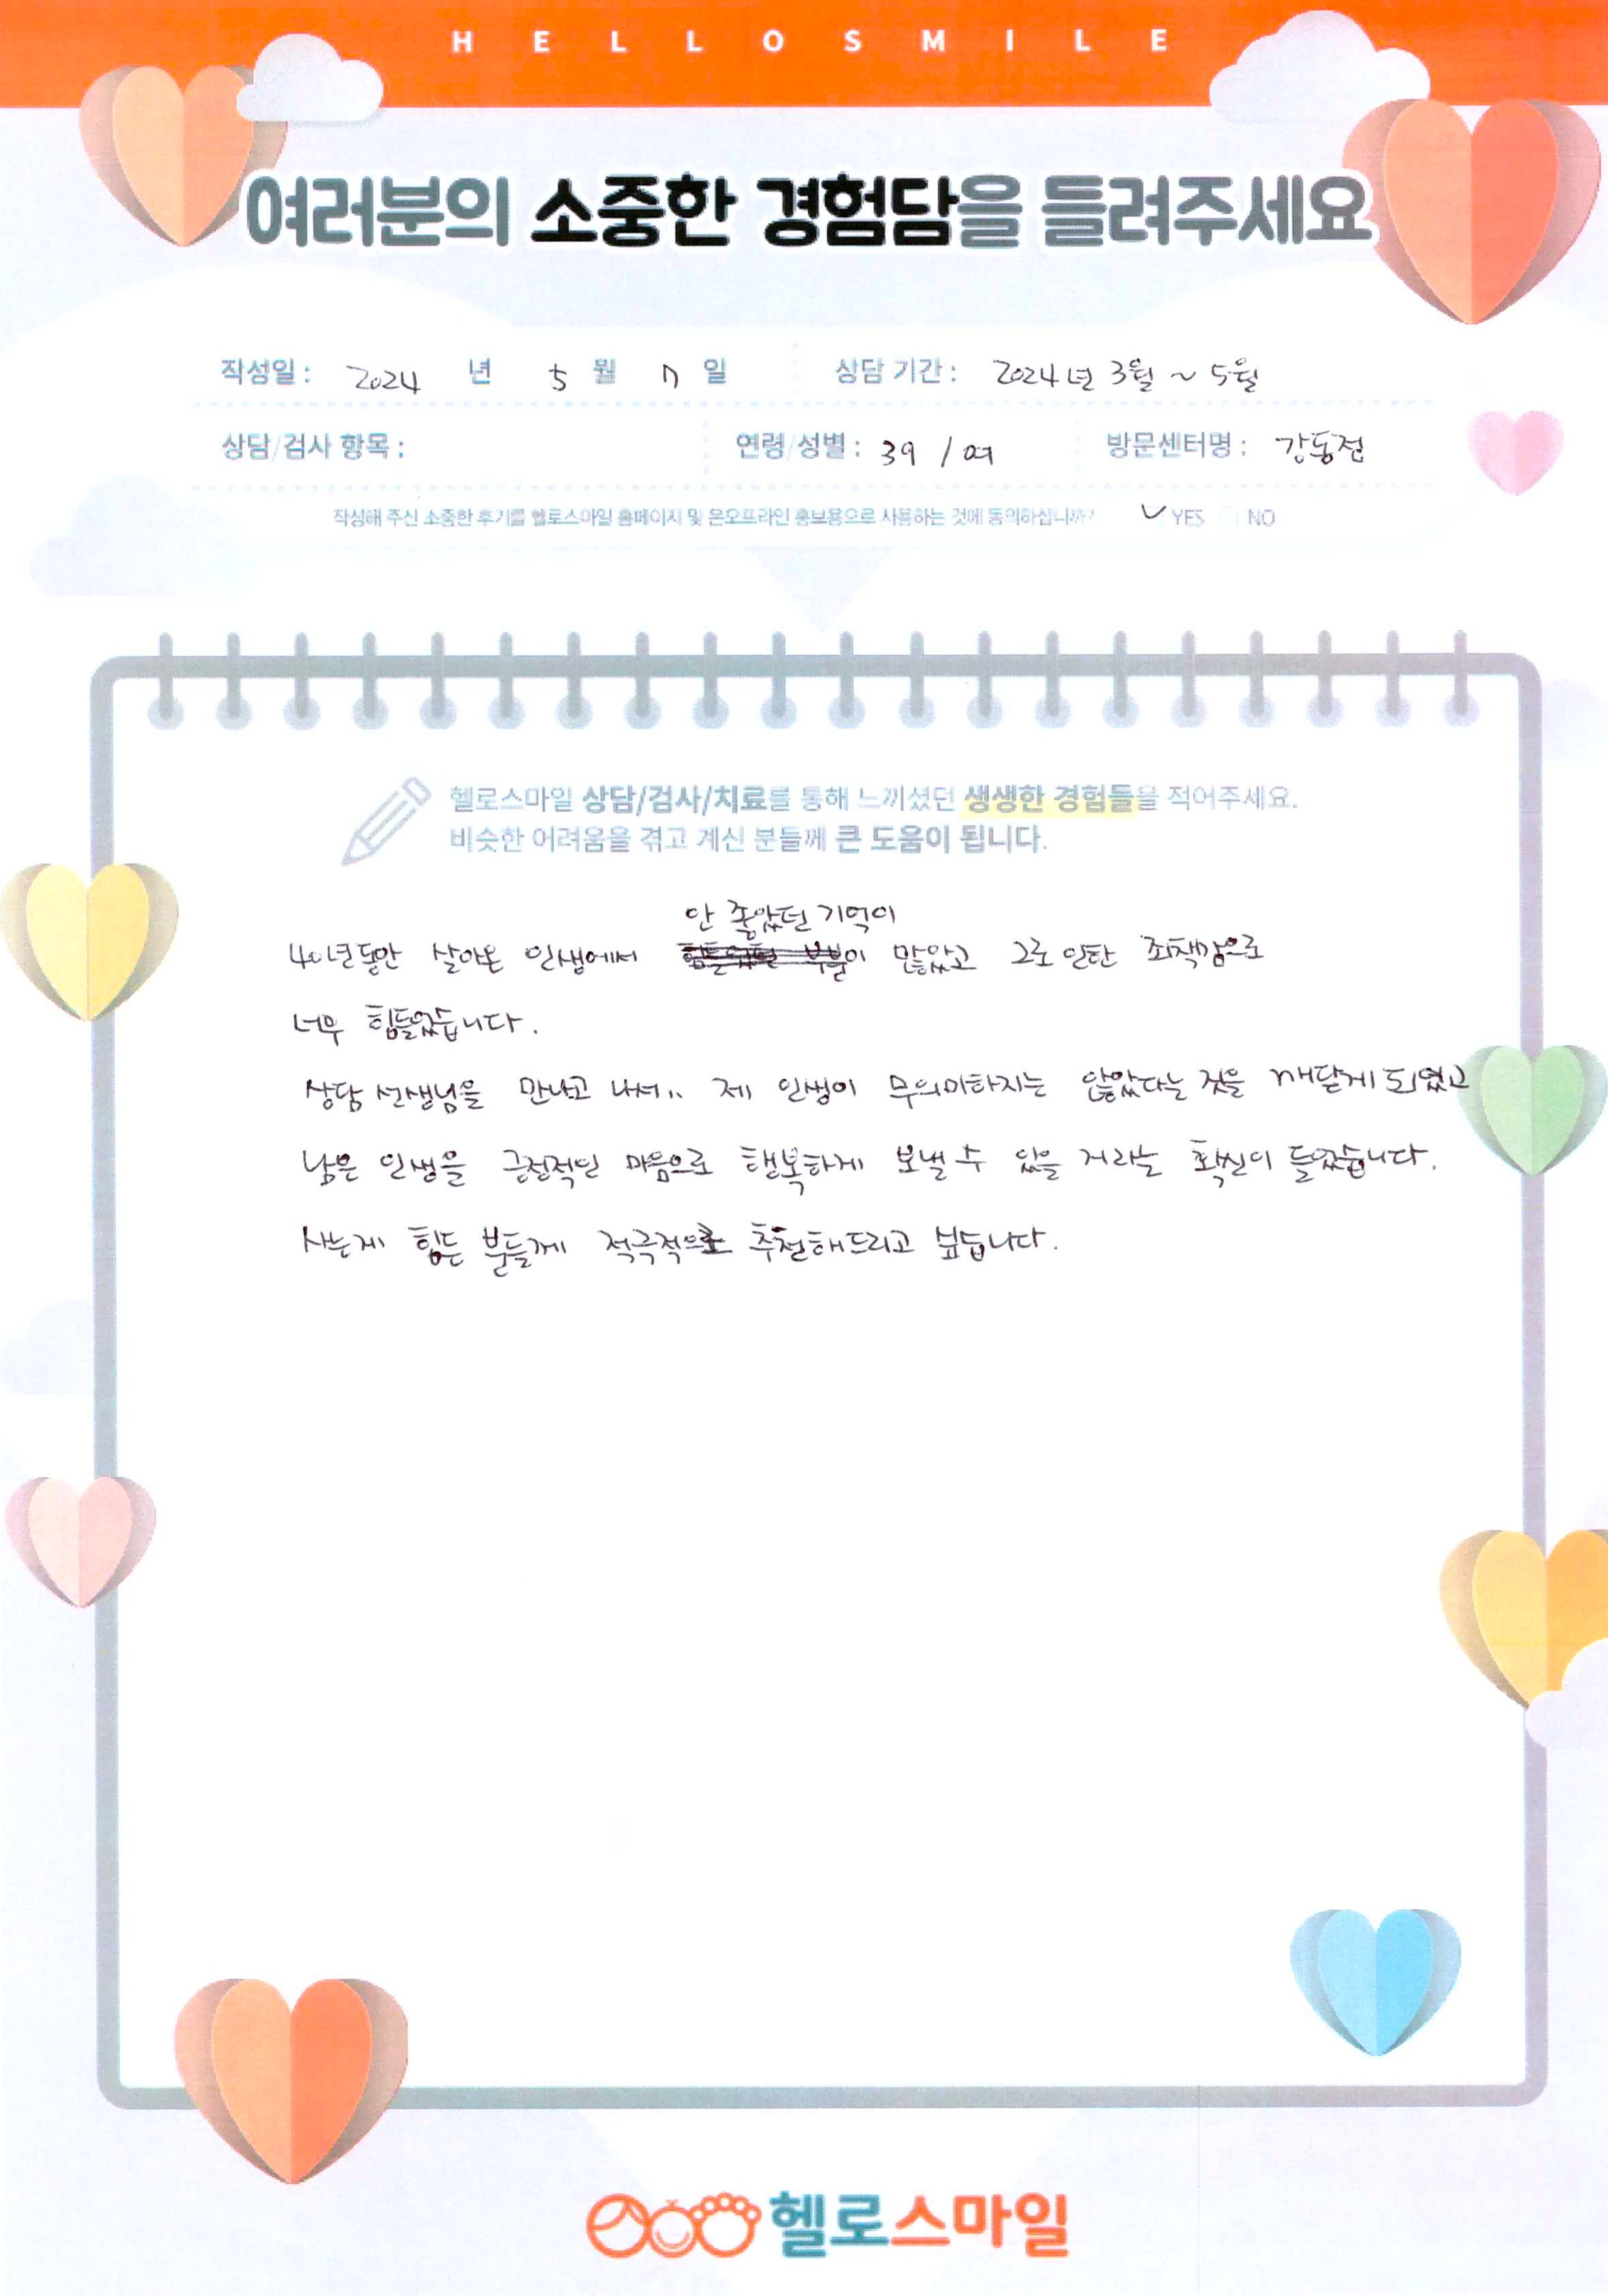 HELLOSMILE
여러분의 소중한 경험담을 들려주세요
작성일 : 2024 년 5 월 7 일 상담 기간 : 2024년 3월 ~ 5월
상담/검사 항목 : 연령/성별 : 39 / 여 방문센터명 : 강동점
작성해 주신 소중한 후기를 헬로스마일 홈페이지 및 온오프라인 홍보용으로 사용하는 것에 동의하십니까? ✓ YES NO
헬로스마일 상담/검사/치료를 통해 느끼셨던 생생한 경험들을 적어주세요.
비슷한 어려움을 겪고 계신 분들께 큰 도움이 됩니다.
안 좋았던 기억이
40년동안 살아온 인생에서 많았고 그로 인한 죄책감으로
너무 힘들었습니다.
상담 선생님을 만나고 나서.. 제 인생이 무의미하지는 않았다는 것을 깨닫게 되었고
남은 인생을 긍정적인 마음으로 행복하게 보낼 수 있을 거라는 확신이 들었습니다.
사는게 힘든 분들께 적극적으로 추천해드리고 싶습니다.
헬로스마일